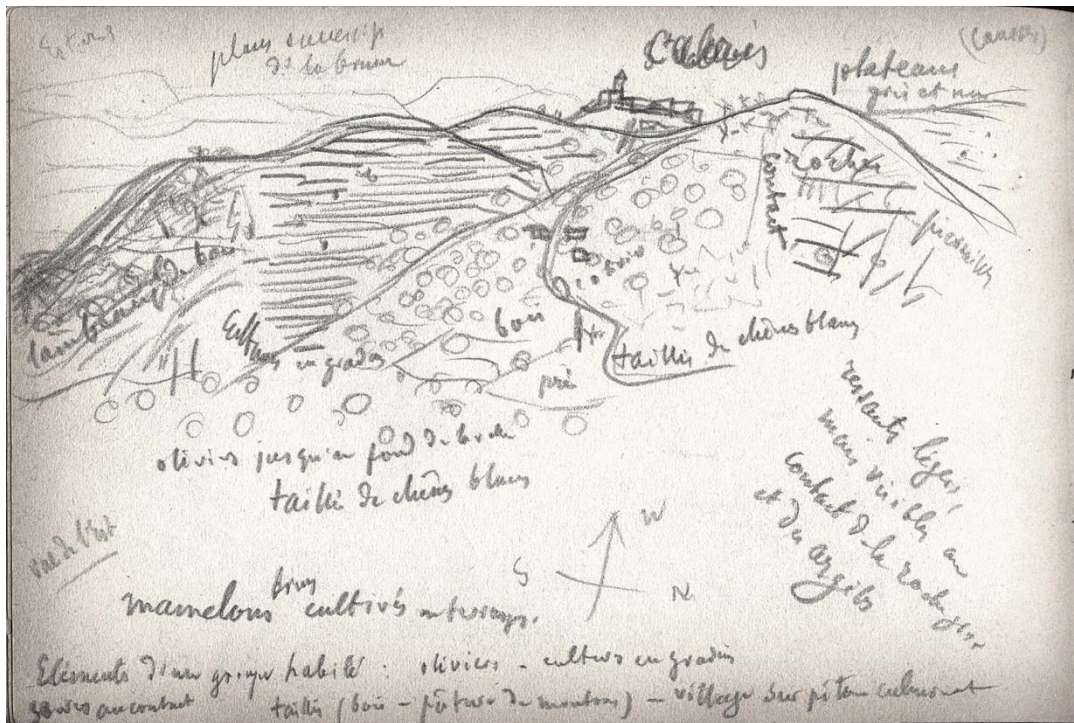 plans successifs
de la brume
Cabris
(Causses)
plateaux
gris et nu
contact
roche
lambeaux de bois
Cultures en gradins
bois
pré
taillis de chênes blancs
oliviers jusqu'au fond de la
taillis de chênes blancs
ressauts légers,
mais visibles au
contact de la roche
et des argiles
Vue de l'Est
W
S
N
mamelons bruns cultivés en terrasses.
Eléments d'un groupe habité : oliviers - cultures en gradins
au contact taillis (bois - pâture de moutons) - village sur piton culminant